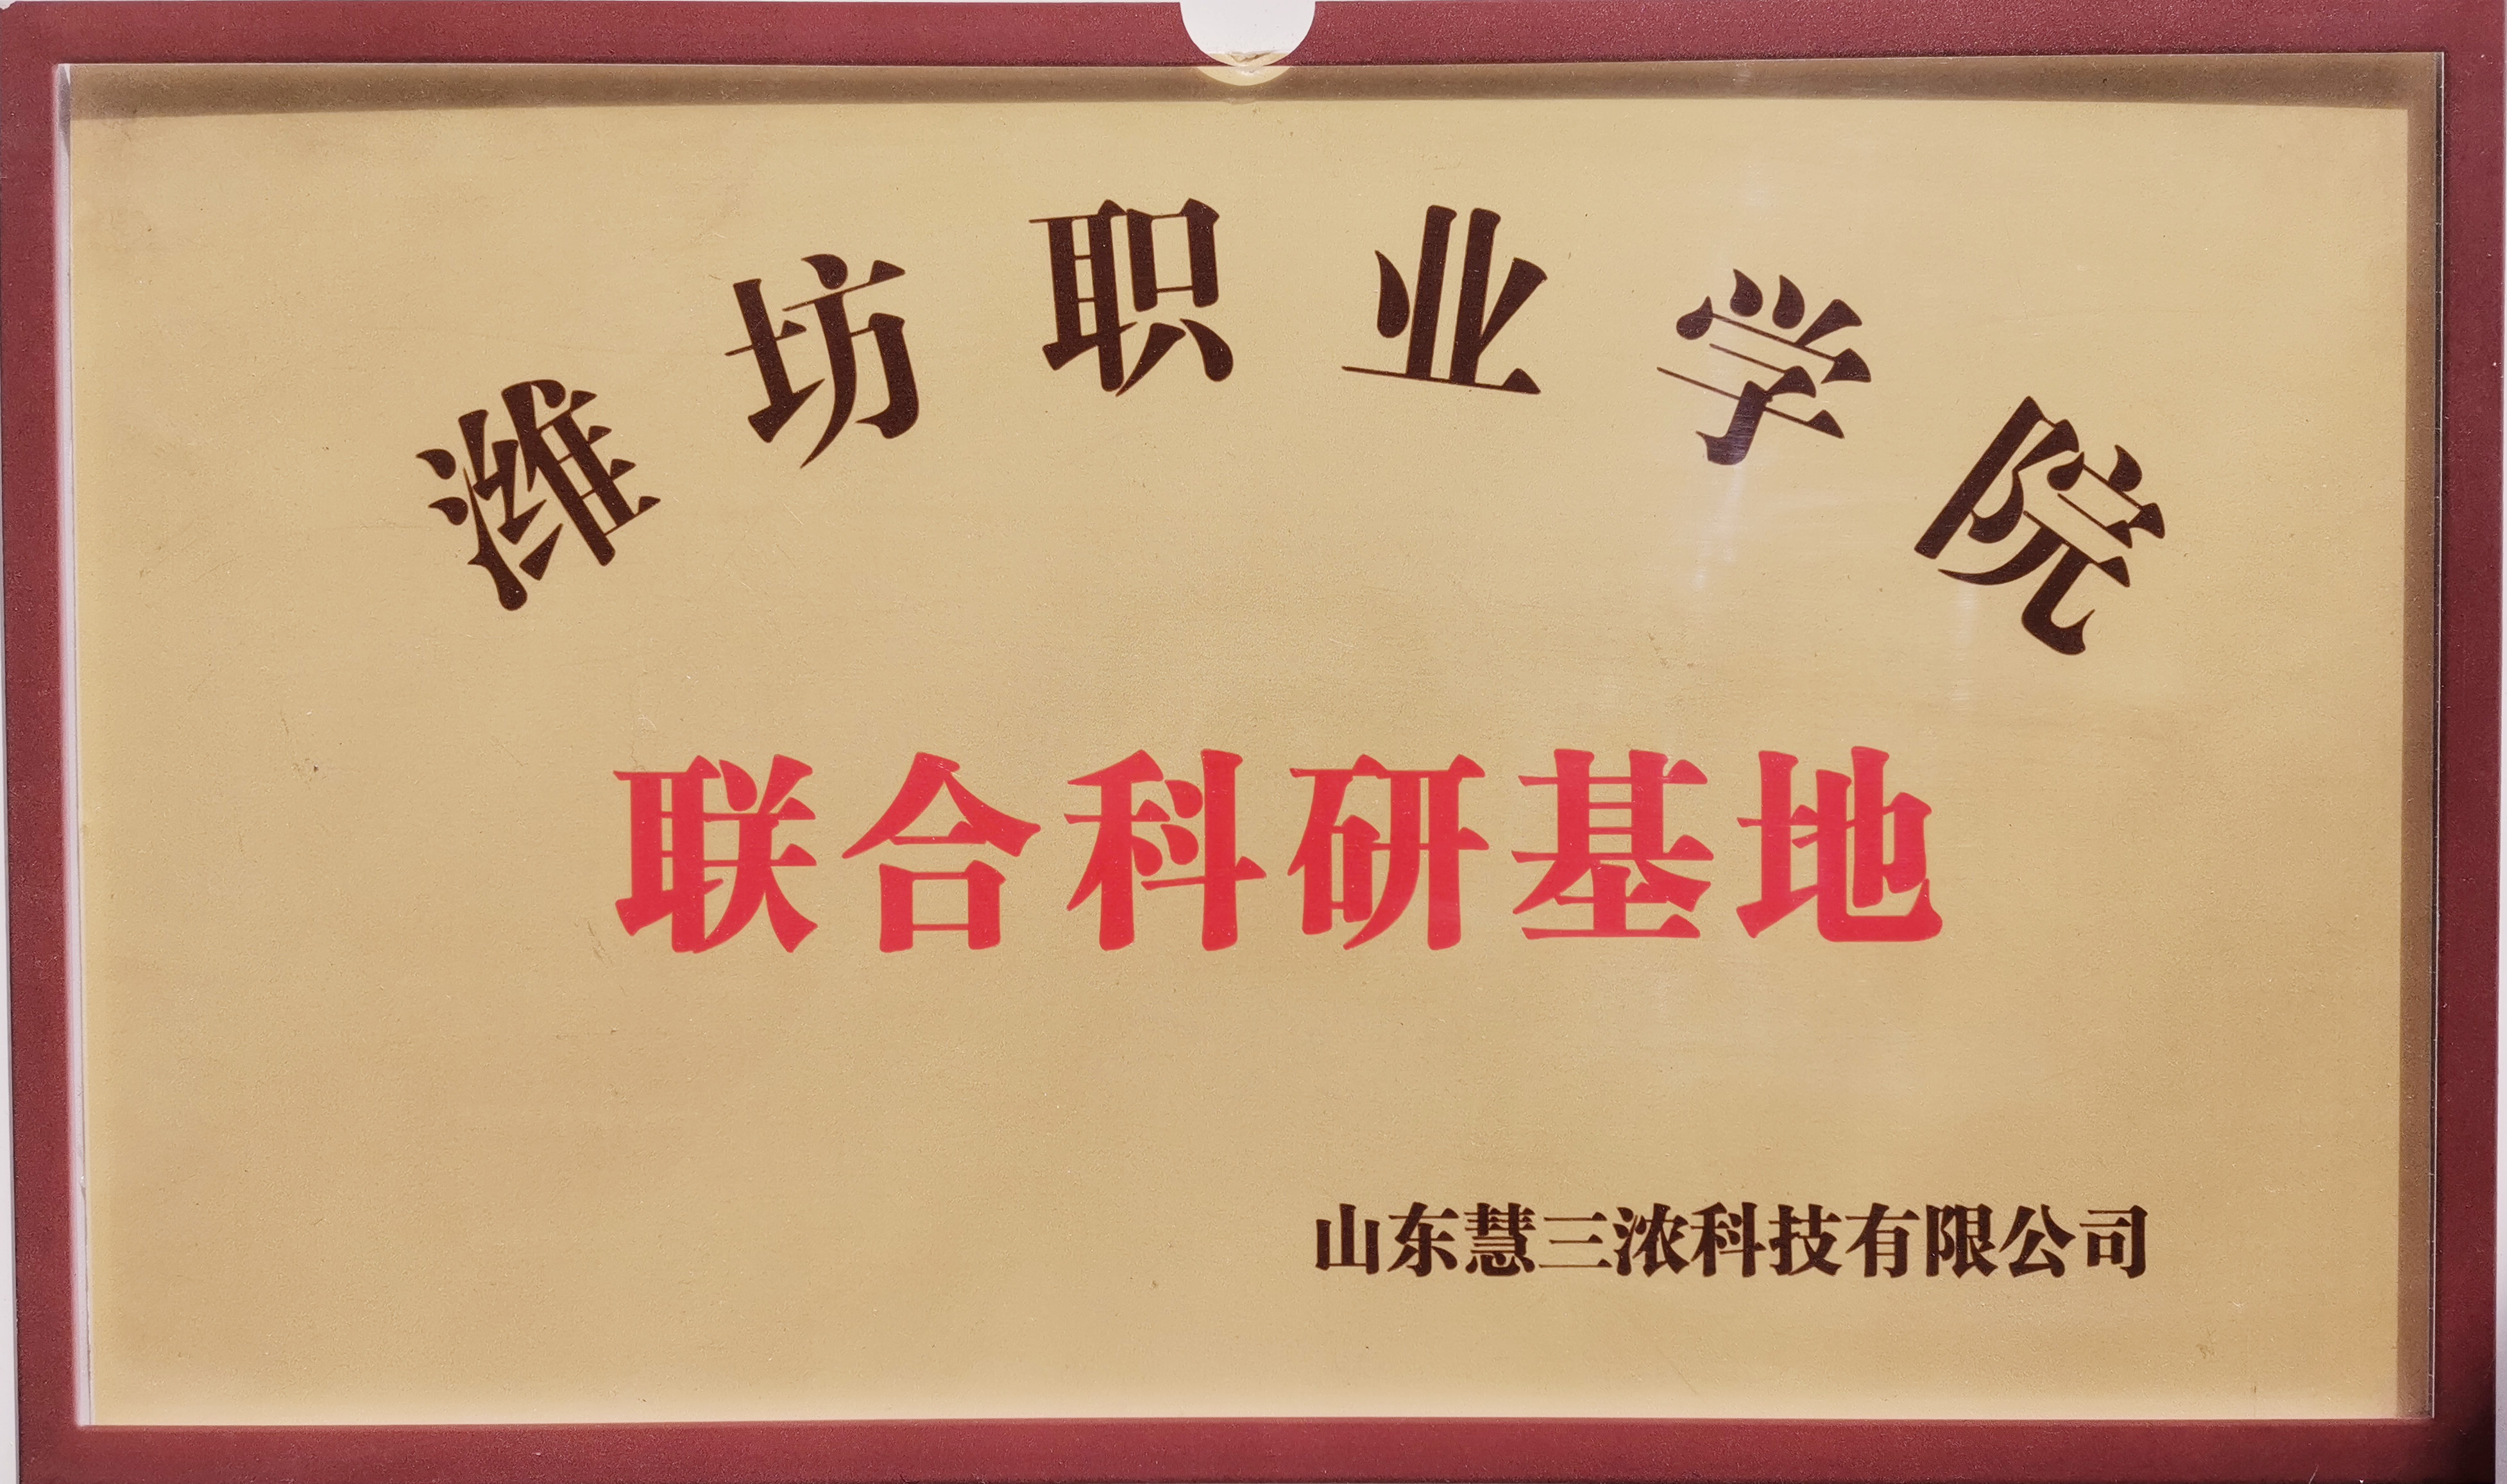 潍坊职业学院
联合科研基地
山东慧三浓科技有限公司